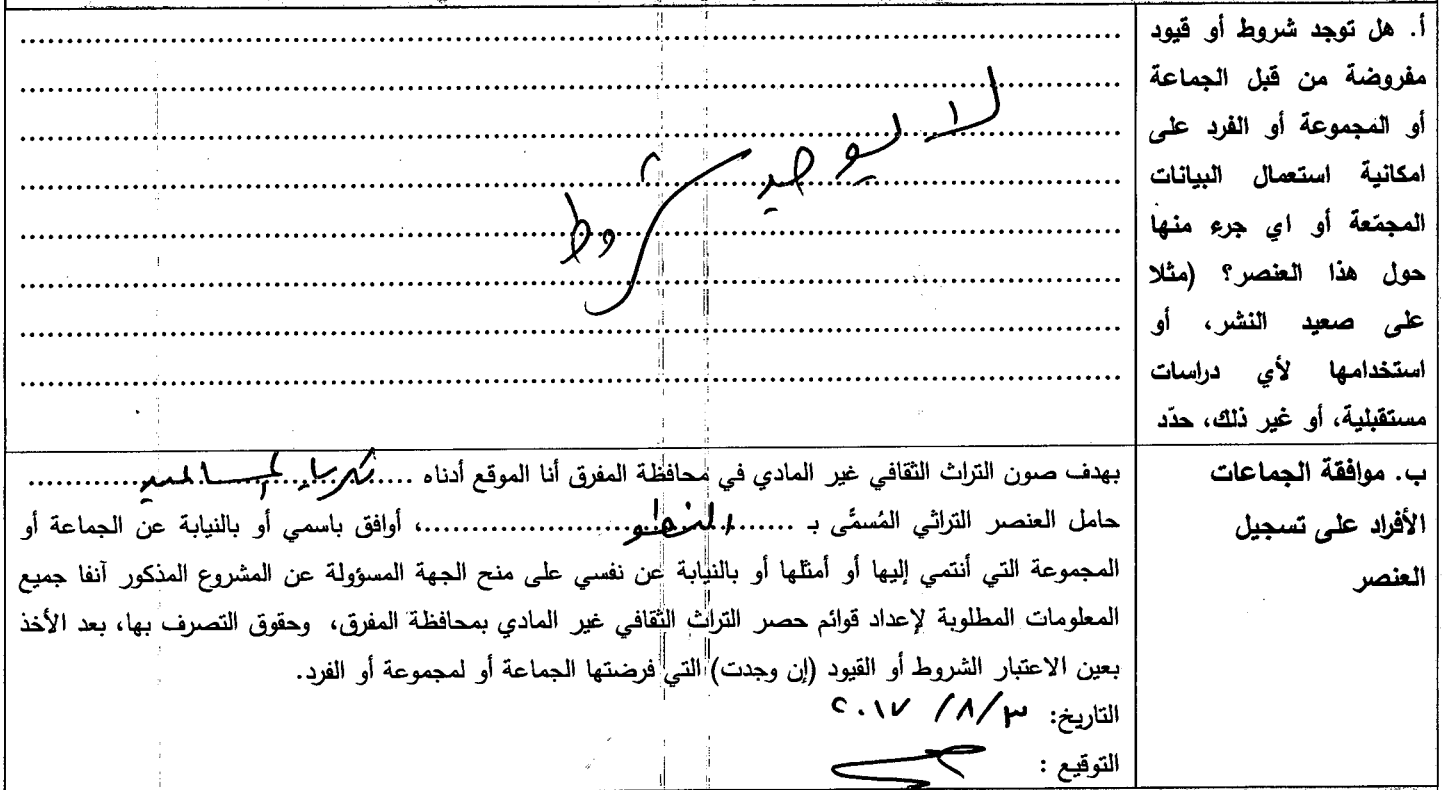 أ. هل توجد شروط أو قيود
مفروضة من قبل الجماعة
أو المجموعة أو الفرد على
امكانية استعمال البيانات
المجمّعة أو اي جرء منها
حول هذا العنصر؟ (مثلا
على صعيد النشر، أو
استخدامها لأي دراسات
مستقبلية، أو غير ذلك، حدّد
لا يوجد شروط
ب. موافقة الجماعات
الأفراد على تسجيل
العنصر
بهدف صون التراث الثقافي غير المادي في محافظة المفرق أنا الموقع أدناه ..... زكريا ............
حامل العنصر التراثي المُسمَّى بـ ............................، أوافق باسمي أو بالنيابة عن الجماعة أو
المجموعة التي أنتمي إليها أو أمثلها أو بالنيابة عن نفسي على منح الجهة المسؤولة عن المشروع المذكور آنفا جميع
المعلومات المطلوبة لإعداد قوائم حصر التراث الثقافي غير المادي بمحافظة المفرق، وحقوق التصرف بها، بعد الأخذ
بعين الاعتبار الشروط أو القيود (إن وجدت) التي فرضتها الجماعة أو لمجموعة أو الفرد.
التاريخ: ٣/٨/ ٢٠١٧
التوقيع :